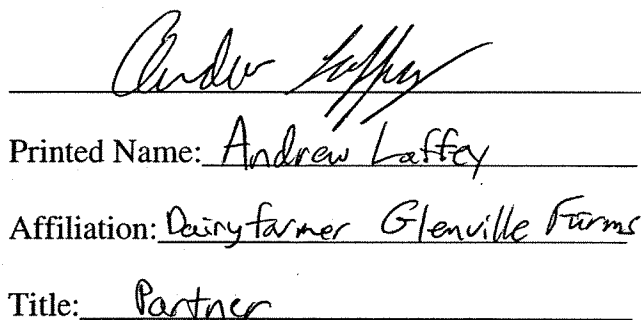 Andrew Laffey
Printed Name: Andrew Laffey
Affiliation: Dairyfarmer Glenville Farms
Title: Partner